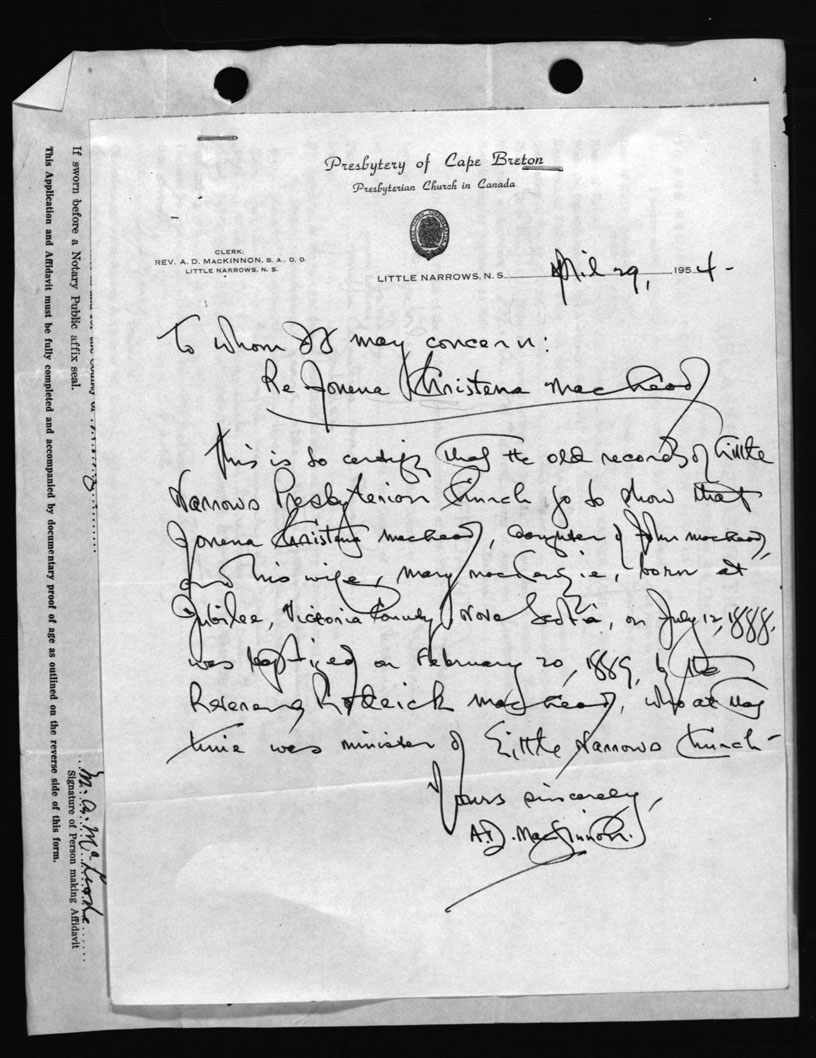 Presbytery of Cape Breton
Presbyterian Church in Canada
CLERK:
REV. A. D. MACKINNON, B. A., D. D.
LITTLE NARROWS, N. S.
LITTLE NARROWS, N. S. April 29, 1954-
To whom It may concern:
Re Jonena Christena MacLeod
This is to certify that the old records of Little
Narrows Presbyterian Church go to show that
Jonena Christena MacLeod, daughter of John MacLeod,
and his wife, Mary MacKenzie, born at
Jubilee, Victoria County, Nova Scotia, on July 12, 1888.
was baptized on February 20, 1889, by the
Reverend Roderick MacLeod, who at that
time was minister of Little Narrows Church-
Yours sincerely,
A.D. MacKinnon.
If sworn before a Notary Public affix seal.
This Application and Affidavit must be fully completed and accompanied by documentary proof of age as outlined on the reverse side of this form.
Signature of Person making Affidavit